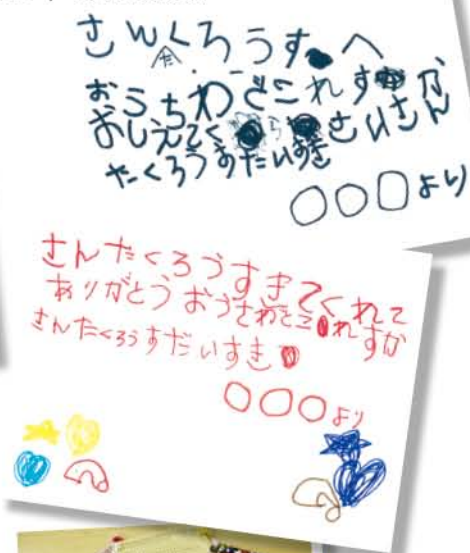 さんたくろうすへ
おうちわどこれすか
おしえてくらさいさん
たくろうすだいすき
○○○より
さんたくろうすきてくれて
ありがとうおうさわとこれすか
さんたくろうすだいすき
○○○より